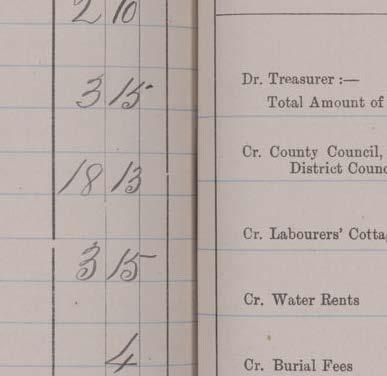 2 10
3 15
18 13
3 15
4
Dr. Treasurer :—
Total Amount of
Cr. County Council,
District Counc
Cr. Labourers' Cotta
Cr. Water Rents
Cr. Burial Fees